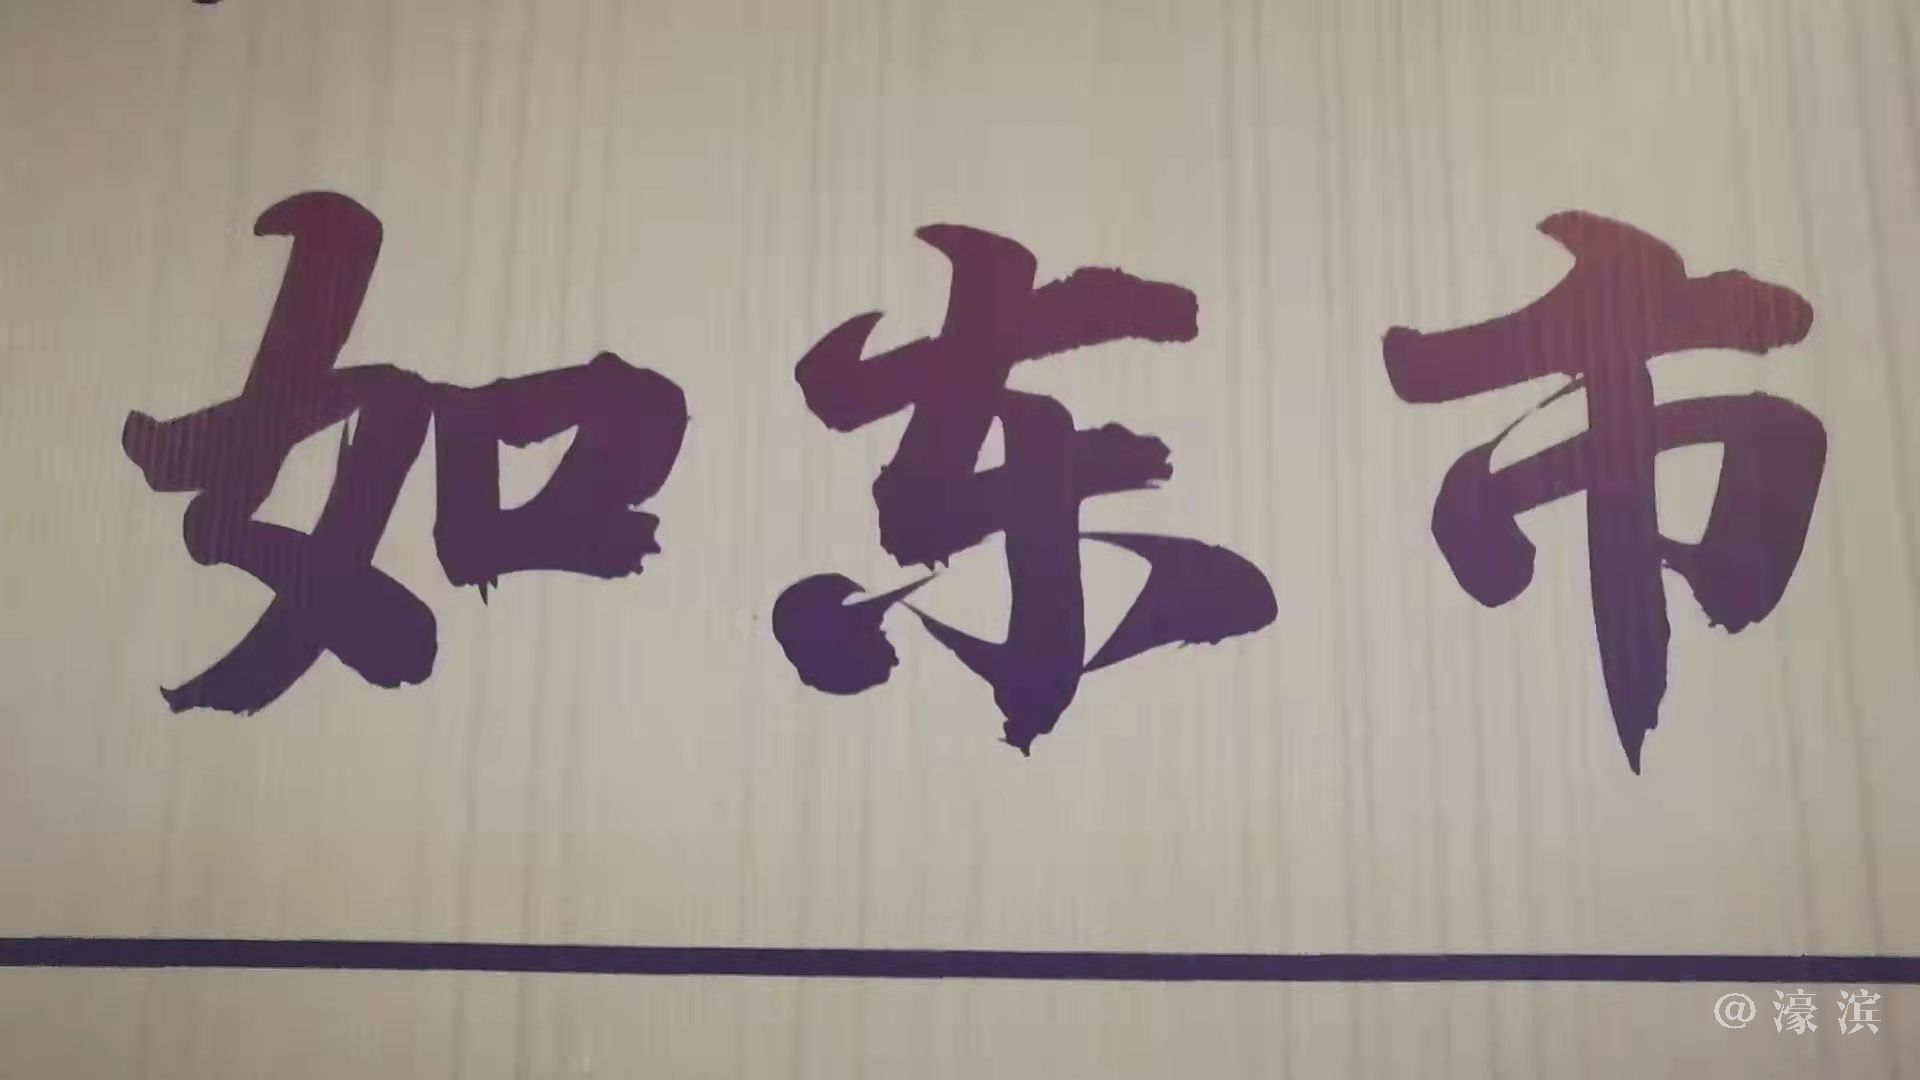 如东市
@濠滨